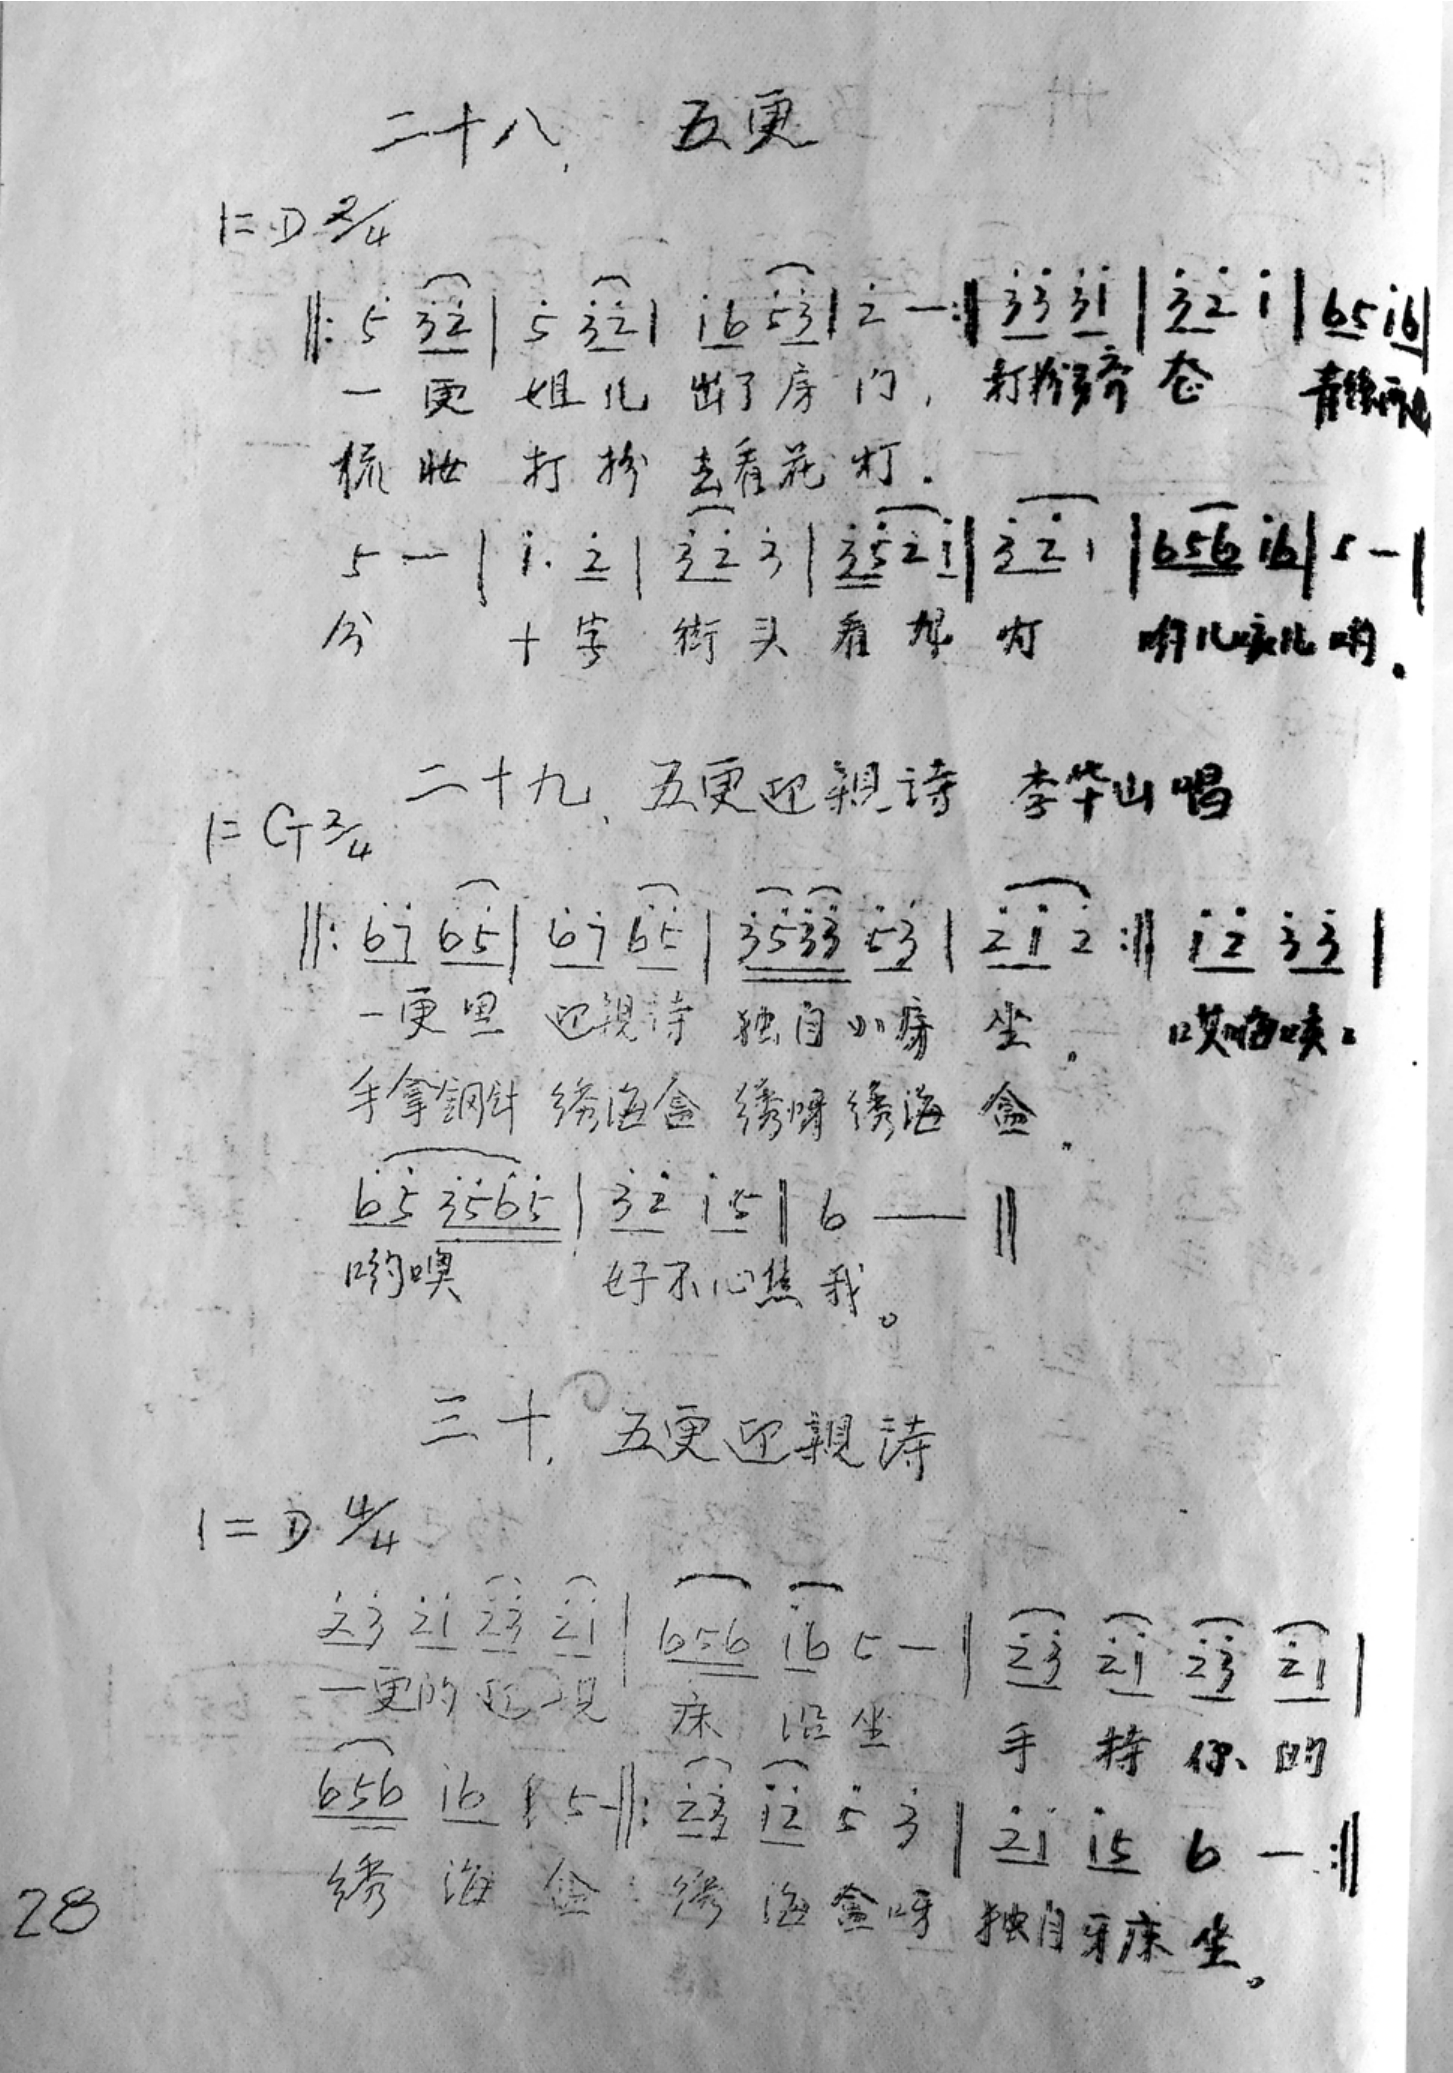 二十八、 五更
1=D 2/4
‖: 5̇ 3̇2̇ | 5̇ 3̇2̇ | i6 5̇3̇ | 2̇ — :‖ 3̇3̇ 3̇i | 3̇2̇ i | 65 i6 |
一更 姐儿 出了房门, 打扮 青丝两边
梳妆 打扮 去看花灯.
5 — | i. 2̇ | 3̇2̇ 3̇ | 3̇5̇2̇i | 3̇2̇i | 656 i6 | 5 — |
分 十字 街头 看 灯 哟儿咳儿哟.
二十九、五更迎親诗 李华山唱
1=G 2/4
‖: 6̇7̇ 6̇5̇ | 6̇7̇ 6̇5̇ | 3̇5̇3̇3̇ 5̇3̇ | 2̇i2̇ :‖ i2̇ 3̇3̇ |
一更里 迎親诗 独自小房 坐。 哎嗨咳
手拿钢针 绣海盒 绣呀绣海 盒。
6̇5̇ 3̇5̇6̇5̇ | 3̇2̇ i5 | 6 — ‖
哟噢 好不心焦我。
三十、五更迎親诗
1=D 4/4
2̇3̇ 2̇i 2̇3̇ 2̇i | 656 i6 5 — | 2̇3̇ 2̇i 2̇3̇ 2̇i |
一更的迎親 床 沿坐 手 持 你 的
656 i6 5 — ‖: 2̇3̇ i2̇ 5̇ 3̇ | 2̇i i5 6 — :‖
绣 海 盒 绣 海盒呀 独自牙床 坐。
28